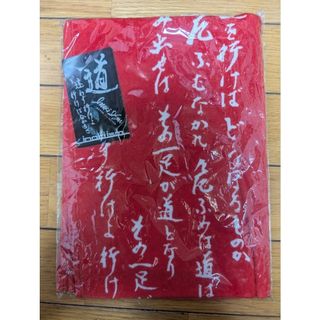 を行けば どうなるものか
危ぶむなかれ 危ぶめば道は
み出せば その一足が道となり
その一足
ず行けよ 行け
道
迷わず行けよ
行けばわかるさ